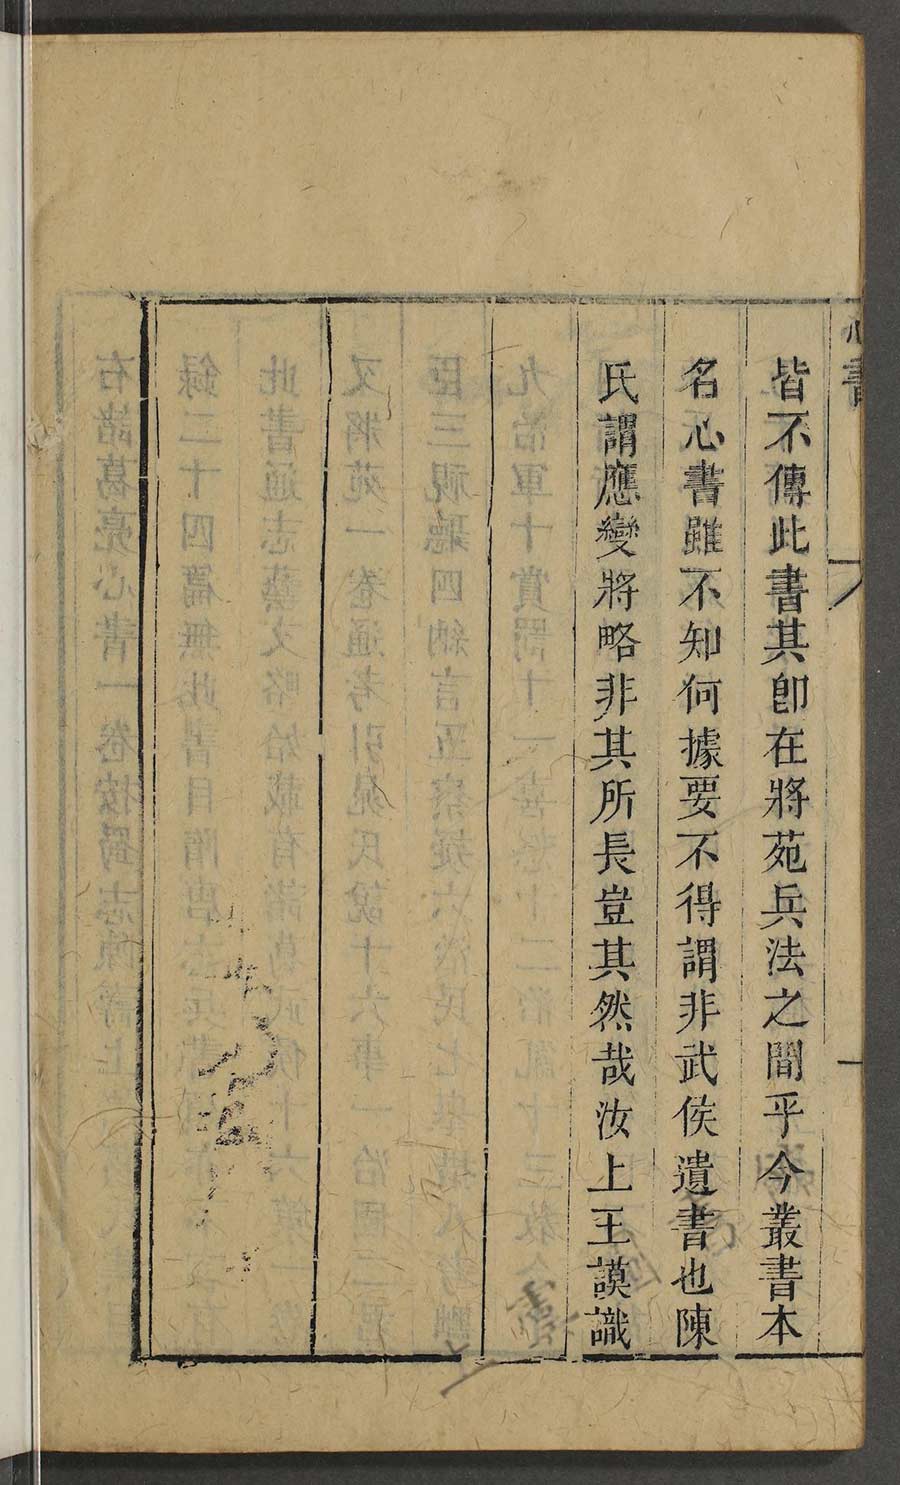 心書
皆不傳此書其卽在將苑兵法之間乎今叢書本
名心書雖不知何據要不得謂非武侯遺書也陳
氏謂應變將略非其所長豈其然哉汝上王謨識